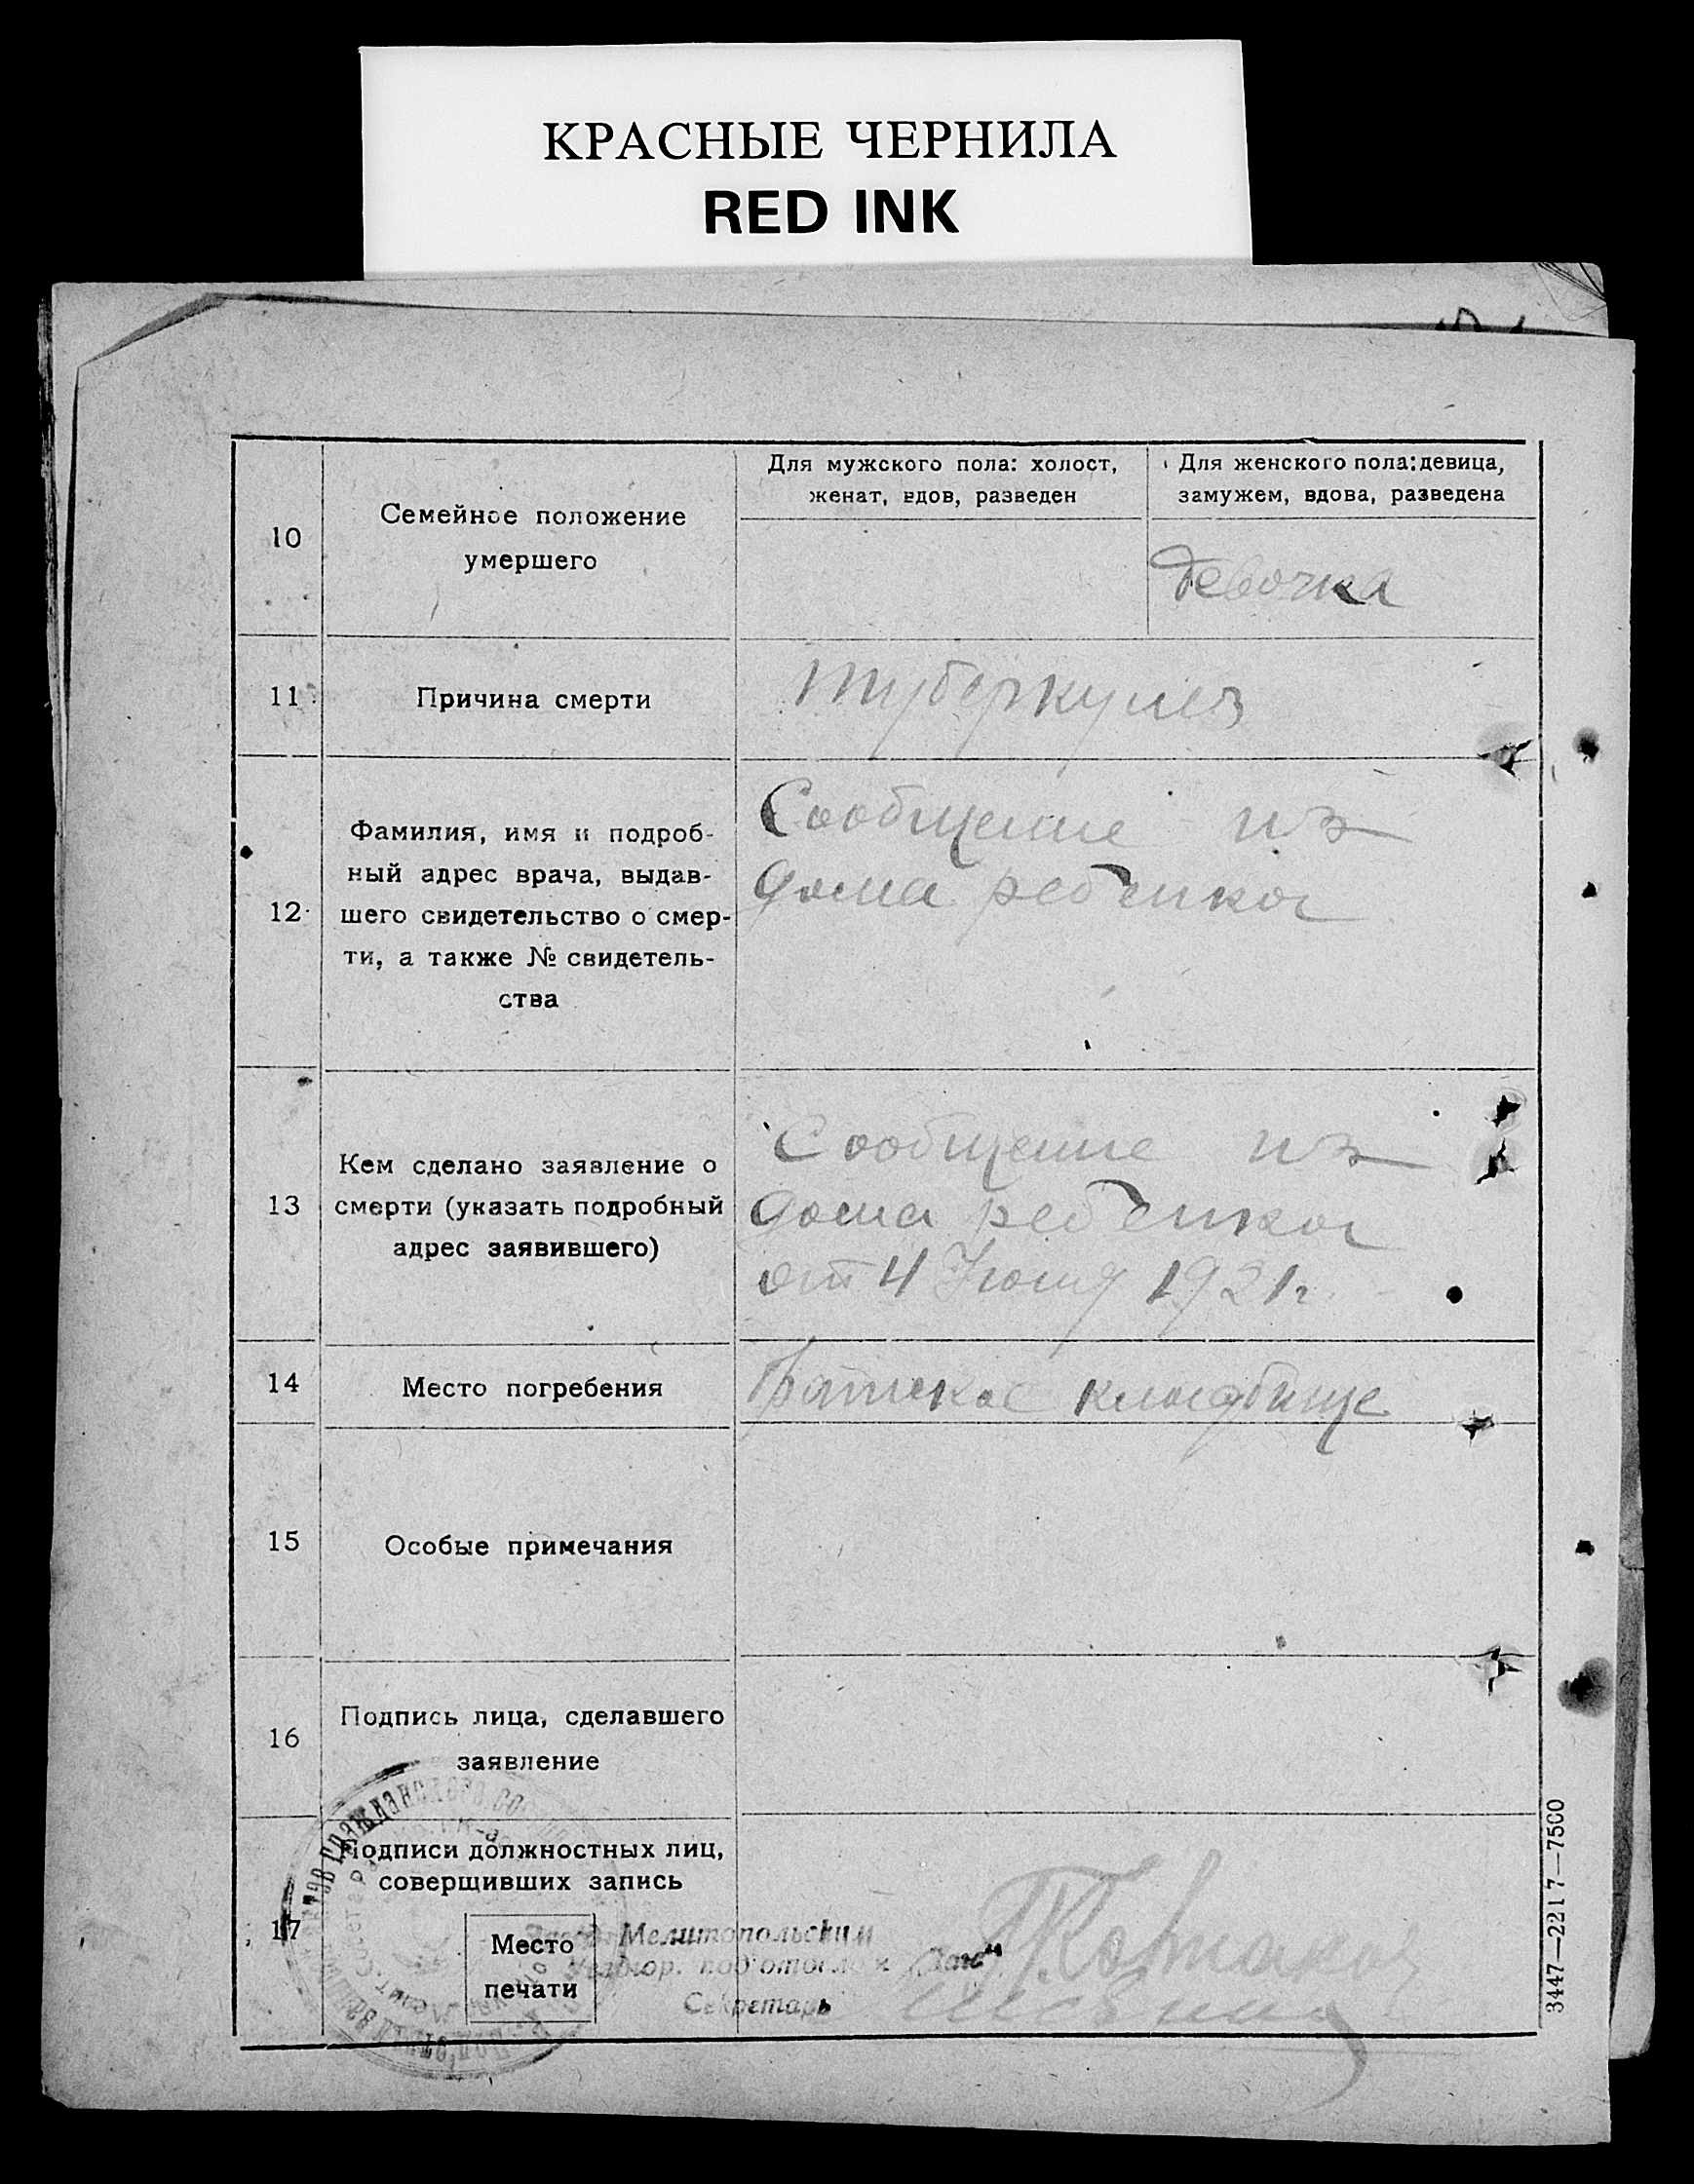 КРАСНЫЕ ЧЕРНИЛА
RED INK
10
Семейное положение
умершего
Для мужского пола: холост,
женат, вдов, разведен
Для женского пола: девица,
замужем, вдова, разведена
девочка
11
Причина смерти
туберкулез
12
Фамилия, имя и подроб-
ный адрес врача, выдав-
шего свидетельство о смер-
ти, а также № свидетель-
ства
Сообщение из
дома ребенка
13
Кем сделано заявление о
смерти (указать подробный
адрес заявившего)
Сообщение из
дома ребенка
от 4 Июня 1921г.
14
Место погребения
Братское кладбище
15
Особые примечания
16
Подпись лица, сделавшего
заявление
17
Подписи должностных лиц,
совершивших запись
Место
печати
Мелитопольским
Загс"
Секретарь
3447—2217—7500